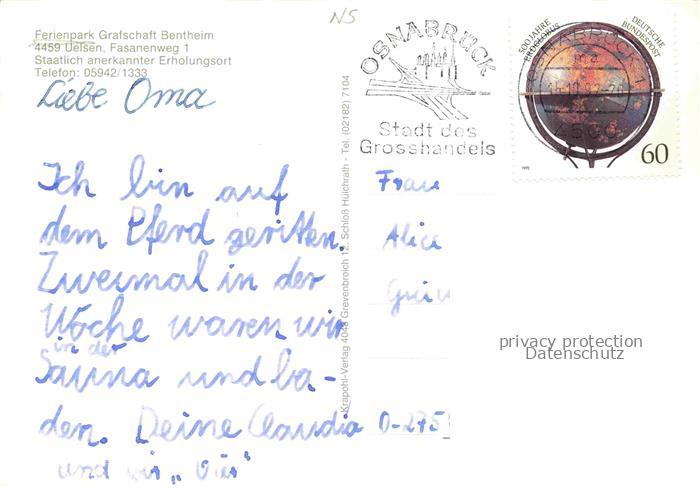 NS
Ferienpark Grafschaft Bentheim
4459 Uelsen, Fasanenweg 1
Staatlich anerkannter Erholungsort
Telefon: 05942/1333
Liebe Oma
Ich bin auf
dem Pferd geritten.
Zweimal in der
Woche waren wir
in der
Sauna und ba-
den. Deine Claudia
und wir „Vier"
Krapohl-Verlag 4048 Grevenbroich 12, Schloß Hülchrath - Tel. (02182) 7104
OSNABRÜCK
Stadt des
Grosshandels
500 JAHRE
ERDGLOBUS
DEUTSCHE
BUNDESPOST
OSNABRÜCK 1
4500
1992
60
Frau
Alice
D-275
privacy protection
Datenschutz